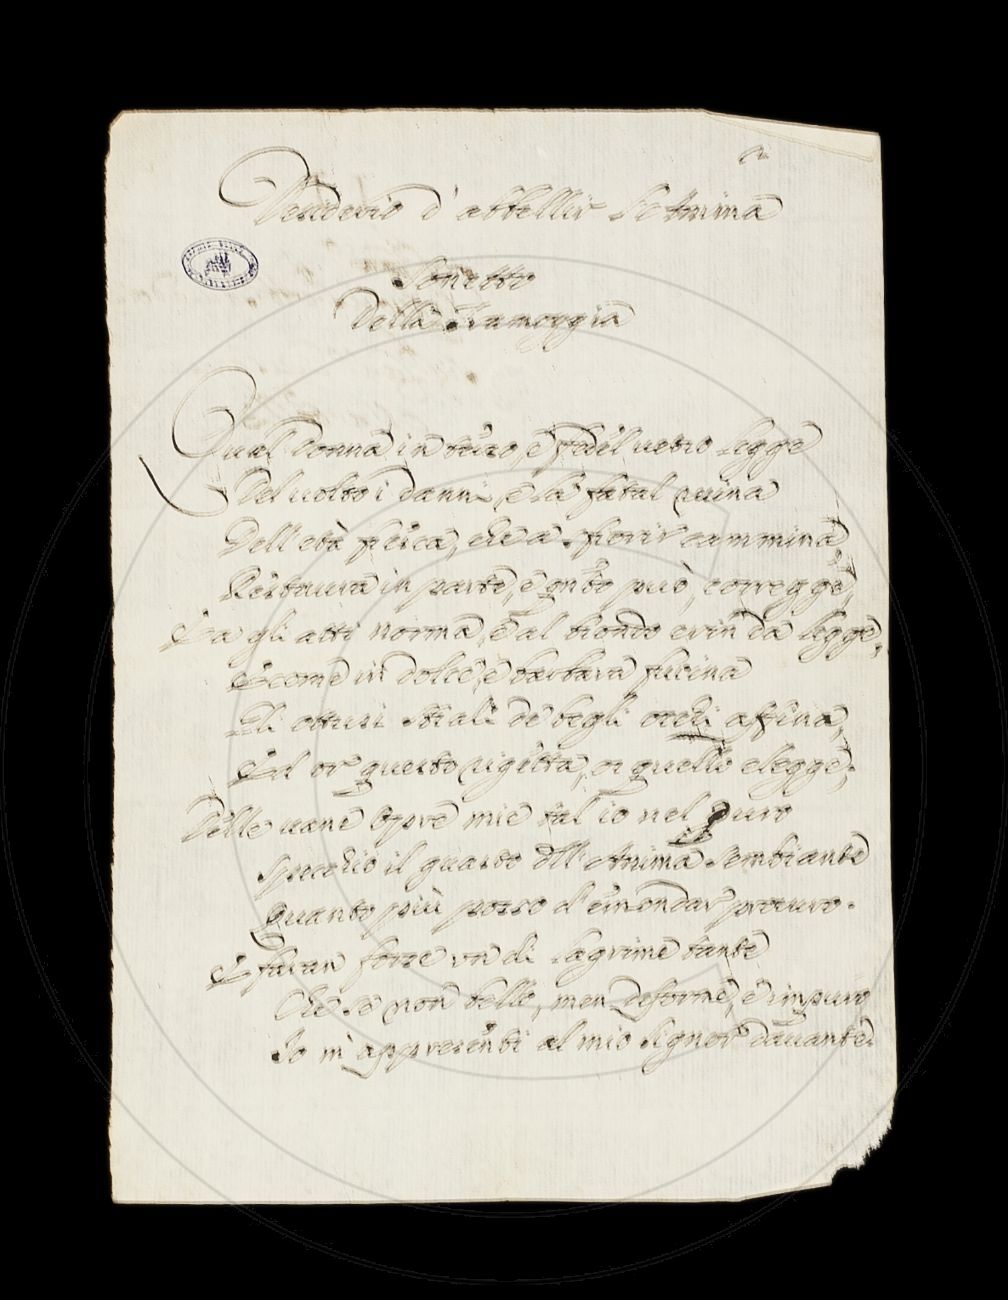 Desiderio d'abbellir l'Anima
Sonetto
Della
Qual donna in terso, e fedel uetro legge
Del uolto i danni, e la fatal ruina
Dell'età fresca, che a sfiorir cammina
Restaura in parte, e qnto può, corregge,
E a gli atti norma, e al biondo crin da legge,
E come in dolce, e barbara fucina
Gli ottusi strali de begli occhi affina,
Ed or questo rigetta, or quello elegge;
Delle uane opre mie tal io nel puro
Specchio il guasto dll'Anima sembiante
Quanto più posso d'emondar procuro.
E faran forse un dì lagrime tante
Che se non bello, men deforme, e impuro
Io m'appresenti al mio Signor dauante.